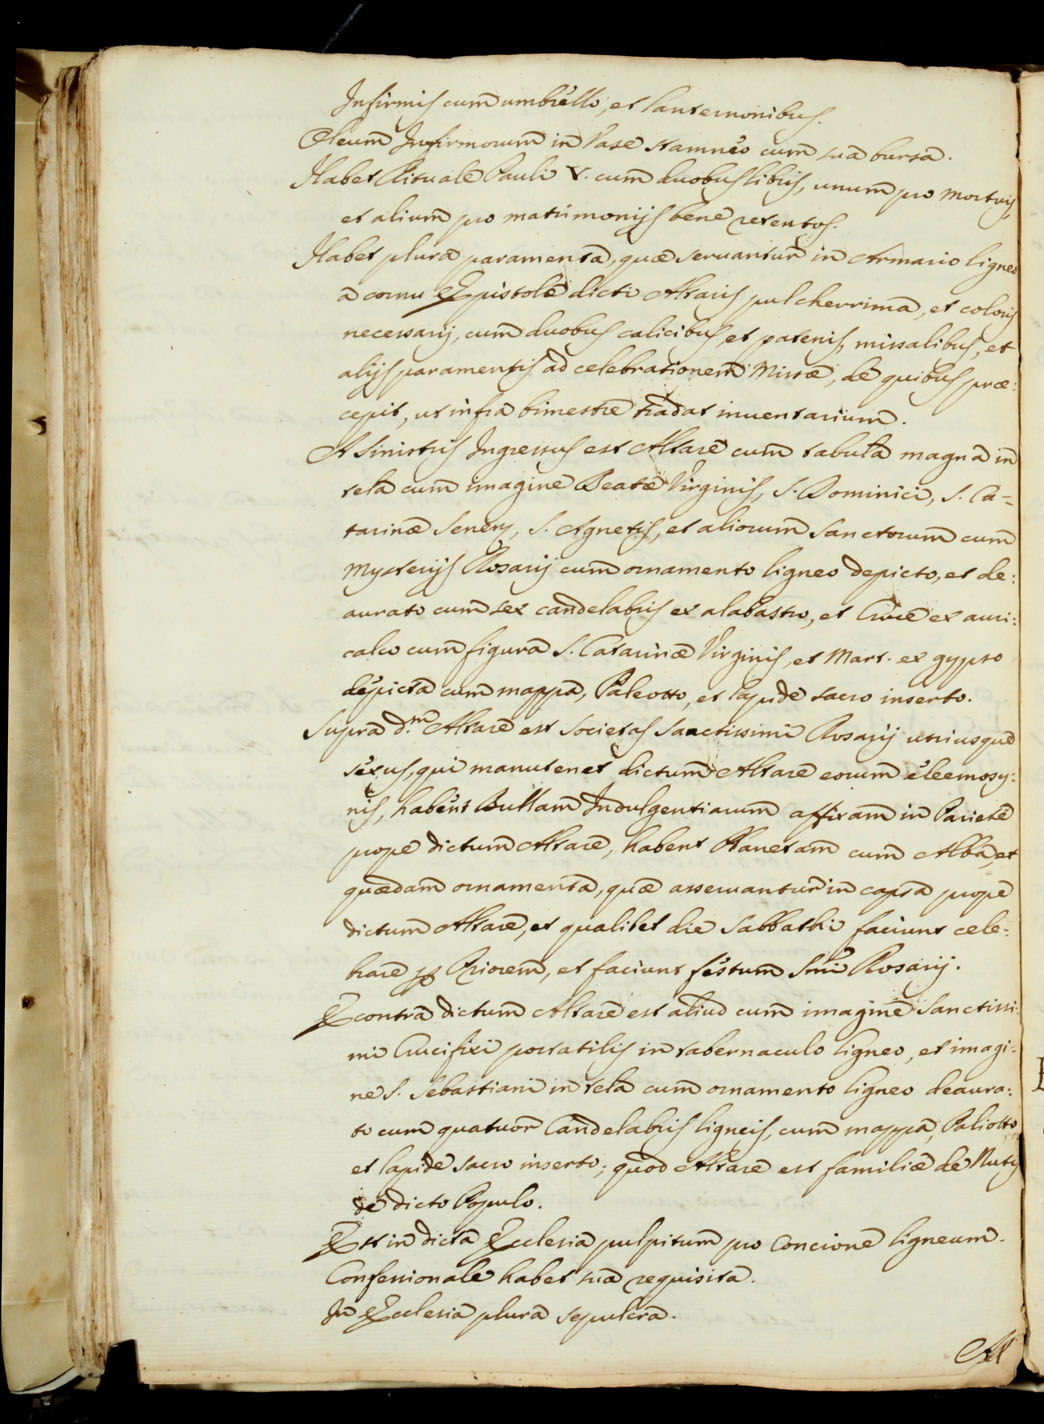 Infirmis cum umbrello, et lanternonibus.
Oleum Infirmorum in Vase stamneo cum sua bursa.
Habet Rituale Pauli V. cum duobus libris, unum pro mortuis,
et alium pro matrimonijs bene retentos.
Habet plura paramenta, quæ servantur in Armario ligneo
a cornu Epistolæ dicti Altaris pulcherrima, et coloris
necessarij, cum duobus calicibus, et patenis, missalibus, et
alijs paramentis ad celebrationem Missæ, de quibus præ:
cepit, ut infra bimestre tradat inventarium.
A sinistris Ingressus est Altare cum tabula magna in
tela cum imagine Beatæ Virginis, S. Dominici, S. Ca=
tarinæ Senens, S. Agnetis, et aliorum Sanctorum cum
Mysterijs Rosarij cum ornamento ligneo depicto, et de:
aurato cum sex candelabris ex alabastro, et Cruce ex auri:
calco cum figura S. Catarinæ Virginis, et Mart. ex gypso
depicta cum mappa, Paleotto, et lapide sacro inserto.
Supra d.m Altare est societas sanctissimi Rosarij utriusque
sexus, qui manutenet dictum Altare eorum eleemosy:
nis, habent Bullam Indulgentiarum affixam in Pariete
prope dictum Altare, habent Planetam cum Alba, et
quædam ornamenta, quæ asservantur in capsa prope
dictum Altare, et qualibet die Sabbathi faciunt cele:
brare p Priorem, et faciunt festum Smi Rosarij.
E contra dictum Altare est aliud cum imagine Sanctissi:
mi Crucifixi portatilis in tabernaculo ligneo, et imagi:
ne S. Sebastiani in tela cum ornamento ligneo deaura:
to cum quatuor Candelabris ligneis, cum mappa, Paliotto
et lapide sacro inserto; quod Altare est familiæ de Nutis
de dicto Populo.
Est in dicta Ecclesia pulpitum pro Concione ligneum.
Confessionale habet sua requisita.
In Ecclesia plura sepulcra.